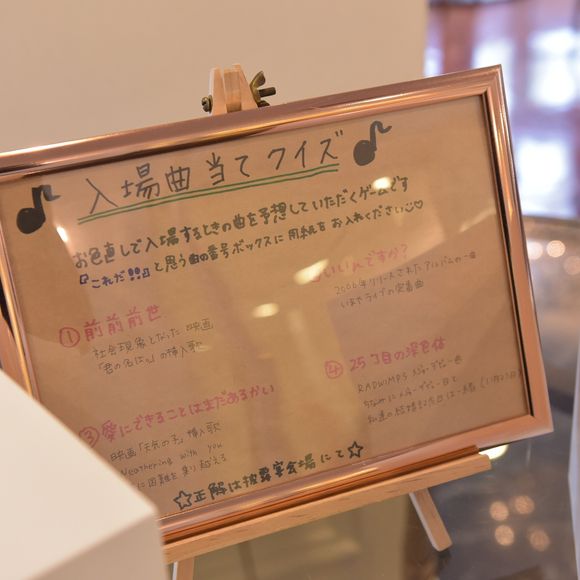 入場曲当てクイズ
お色直しで入場するときの曲を予想していただくゲームです
『これだ!!』と思う曲の番号ボックスに用紙をお入れください
① 前前前世
社会現象となった映画
「君の名は。」の挿入歌
いいんですか?
2006年リリースされたアルバムの一曲
いまやライブの定番曲
③ 愛にできることはまだあるかい
映画「天気の子」挿入歌
Weathering with you
に困難を乗り越える
④ 25コ目の染色体
RADWIMPS メジャーデビュー
ちなみにメジャーデビュー日と
私達の結婚記念日は一緒(11月23日)
☆正解は披露宴会場にて☆